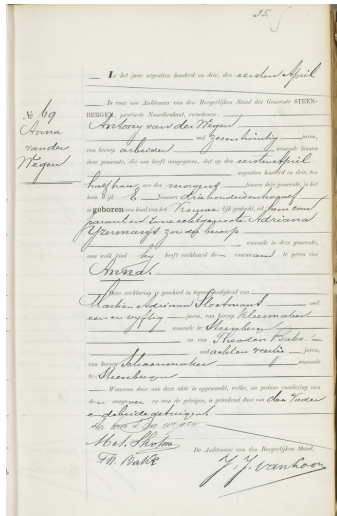 35.
In het jaar negentien honderd en drie, den eersten April
is voor ons Ambtenaar van den Burgerlijken Stand der Gemeente STEEN-
BERGEN, provincie Noordbrabant, verschenen:
Antony van der Wegen
№ 69
Anna
van der
Wegen
oud zesendertig jaren,
van beroep arbeider wonende binnen
deze gemeente, die ons heeft aangegeven, dat op den eersten April
negentien honderd en drie, ten
half ure des morgens binnen deze gemeente, in het
huis wijk E Nummer driehonderd
is geboren een kind van het Vrouwelijke geslacht, uit hem com-
parant en zijne echtgenoote Adriana
IJzermans zonder beroep
wonende in deze gemeente,
aan welk kind hij heeft verklaard den voornaam te geven van
Anna.
Deze verklaring is geschied in tegenwoordigheid van
Marten Adriaan Slootmans oud
een en vijftig jaren, van beroep Kleermaker
wonende te Steenbergen
en van Theodor Bakx
oud acht en veertig jaren,
van beroep Schoenmaker wonende
te Steenbergen
Waarvan door ons deze akte is opgemaakt, welke, na gedane voorlezing aan
de en aan de getuigen, is geteekend door den Vader
en de beide getuigen
Th. Bakx
De Ambtenaar van den Burgerlijken Stand,
J. J. van Loon